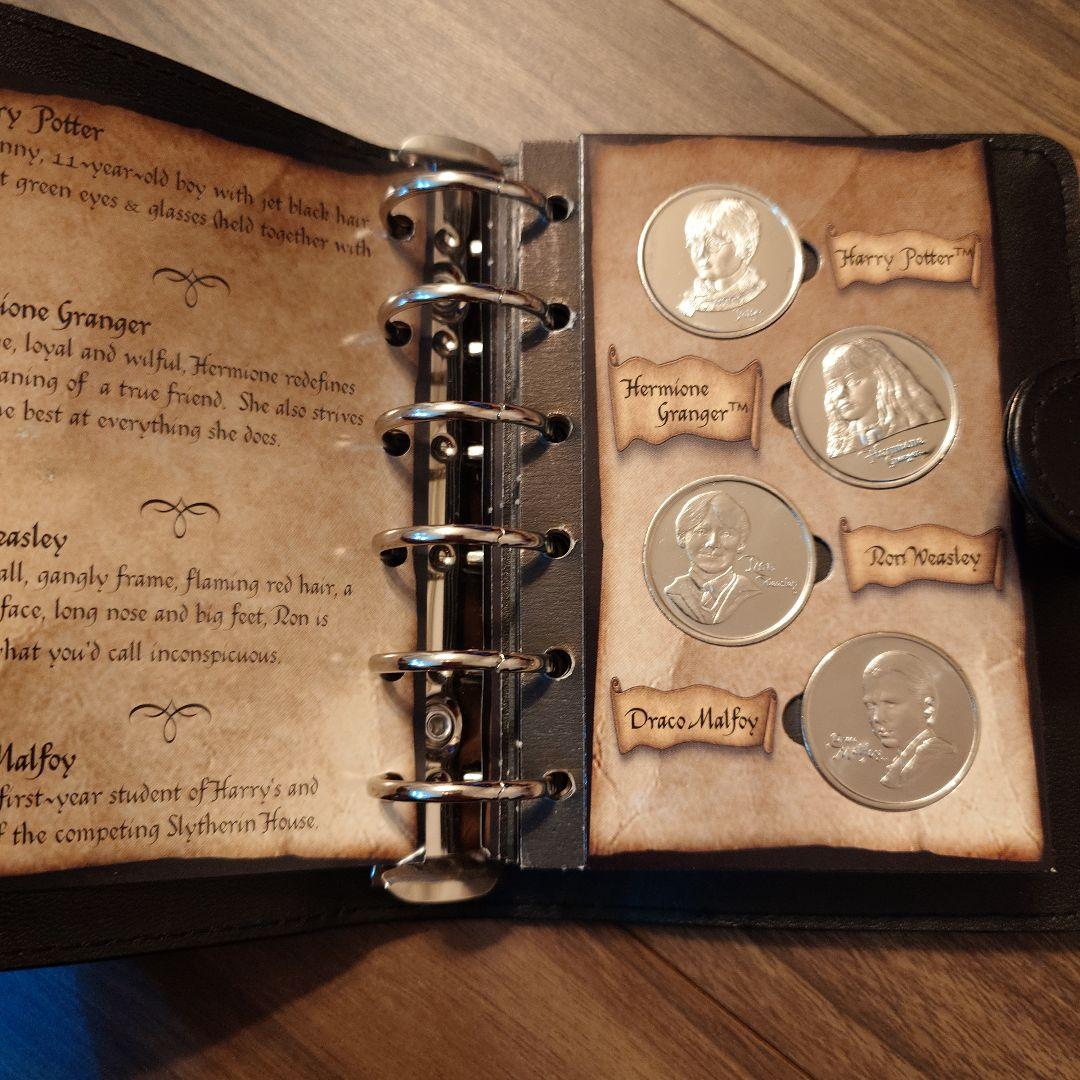 ry Potter
nny, 11~year~old boy with jet black hair
t green eyes & glasses (held together with
ione Granger
e, loyal and wilful, Hermione redefines
aning of a true friend. She also strives
e best at everything she does.
easley
all, gangly frame, flaming red hair, a
face, long nose and big feet, Ron is
hat you'd call inconspicuous.
Malfoy
first~year student of Harry's and
f the competing Slytherin House.
Harry Potter™
Hermione
Granger™
Hermione
Ron Weasley
Draco Malfoy